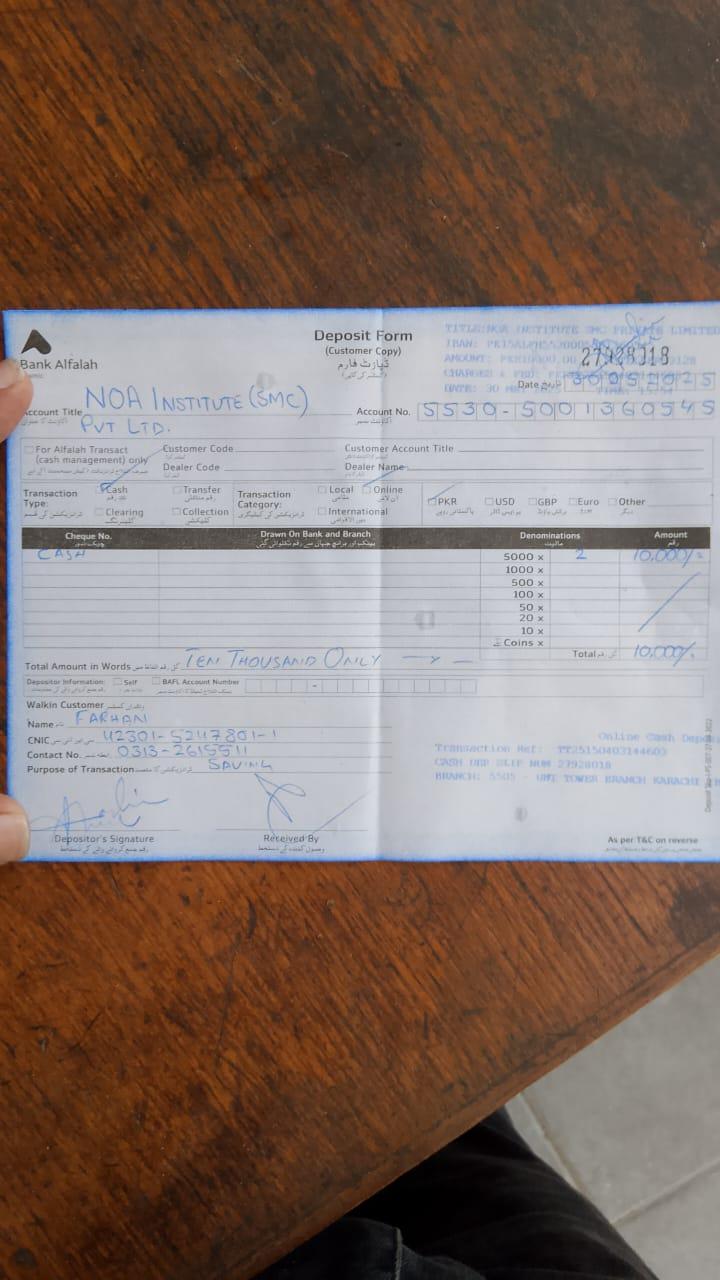 Bank Alfalah
Deposit Form
(Customer Copy)
ڈپازٹ فارم
TITLE:NOA INSTITUTE SMC PRIVATE LIMITED
27928018
Date تاریخ 30052025
Account Title NOA INSTITUTE (SMC)
PVT LTD.
Account No. 5530-5001360545
For Alfalah Transact
(cash management) only
Customer Code
Dealer Code
Customer Account Title
Dealer Name
Transaction
Type:
Cash
Transfer
Clearing
Collection
Transaction
Category:
Local
Online
International
PKR
USD
GBP
Euro
Other
Cheque No.
Drawn On Bank and Branch
Denominations
Amount
CASH
5000 x 2 10,000/=
1000 x
500 x
100 x
50 x
20 x
10 x
Coins x
Total 10,000/.
Total Amount in Words TEN THOUSAND ONLY
Depositor Information:
Self
BAFL Account Number
Walkin Customer
Name FARHAN
CNIC 42301-5247801-1
Contact No. 0313-2615511
Purpose of Transaction SAVING
Online Cash Depo
Transaction Ref: TT25150403144603
CASH DEP SLIP NUM 27928018
BRANCH: 5505 - UNI TOWER BRANCH KARACHI
Depositor's Signature
Received By
As per T&C on reverse